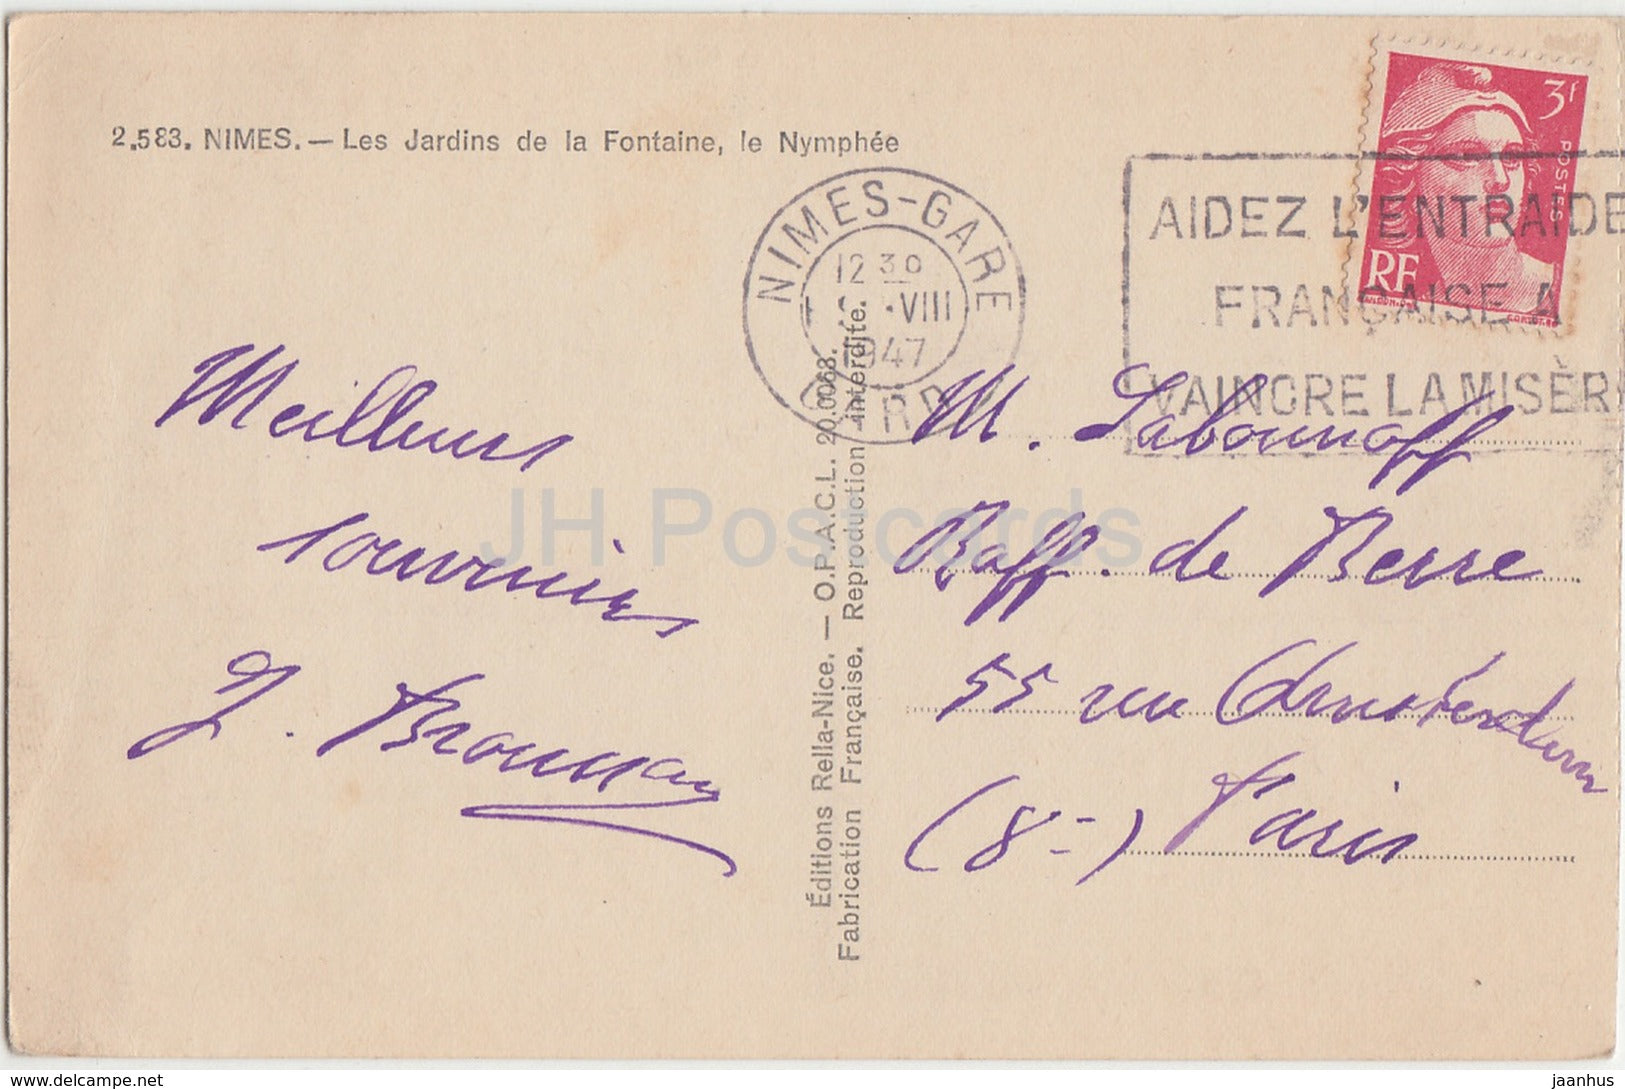 2.583. NIMES. — Les Jardins de la Fontaine, le Nymphée
NIMES-GARE
12 30
VIII
1947
GARD
3f
POSTES
RF
AIDEZ L'ENTRAIDE
FRANÇAISE A
VAINCRE LA MISÈR
Meilleurs
souvenirs
M.
Raff. de Berre
55 rue Amsterdam
(8=) Paris
Éditions Rella-Nice. — O.P.A.C.L. 20.0063.
Fabrication Française. Reproduction interdite.
JH Postcards
www.delcampe.net
jaanhus